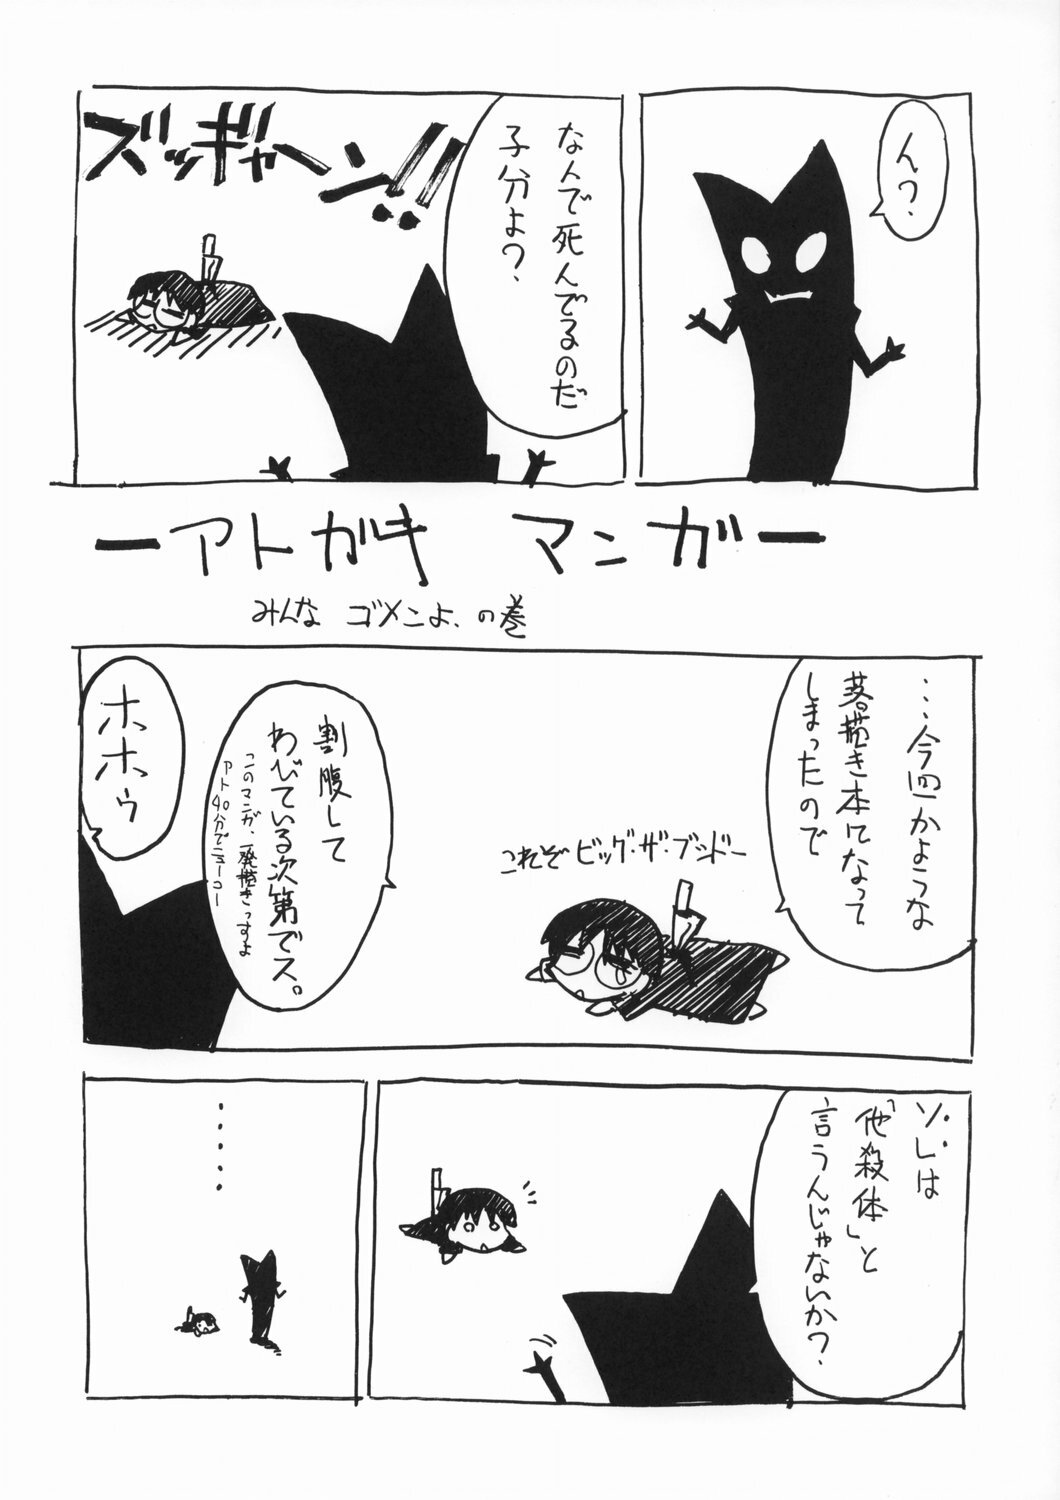 ん?
なんで死んでるのだ
子分よ?
ズッギャーン!!
ーアトガキ マンガー
みんな ゴメンよ、の巻
…今回かような
落描き本になって
しまったので
これぞ ビッグ・ザ・ブシドー
割腹して
わびている次第でス。
このマンガ、一発描きっすよ
アト40分でニューコー
ホホゥ
ソレは
「他殺体」と
言うんじゃないか?
・・・・・